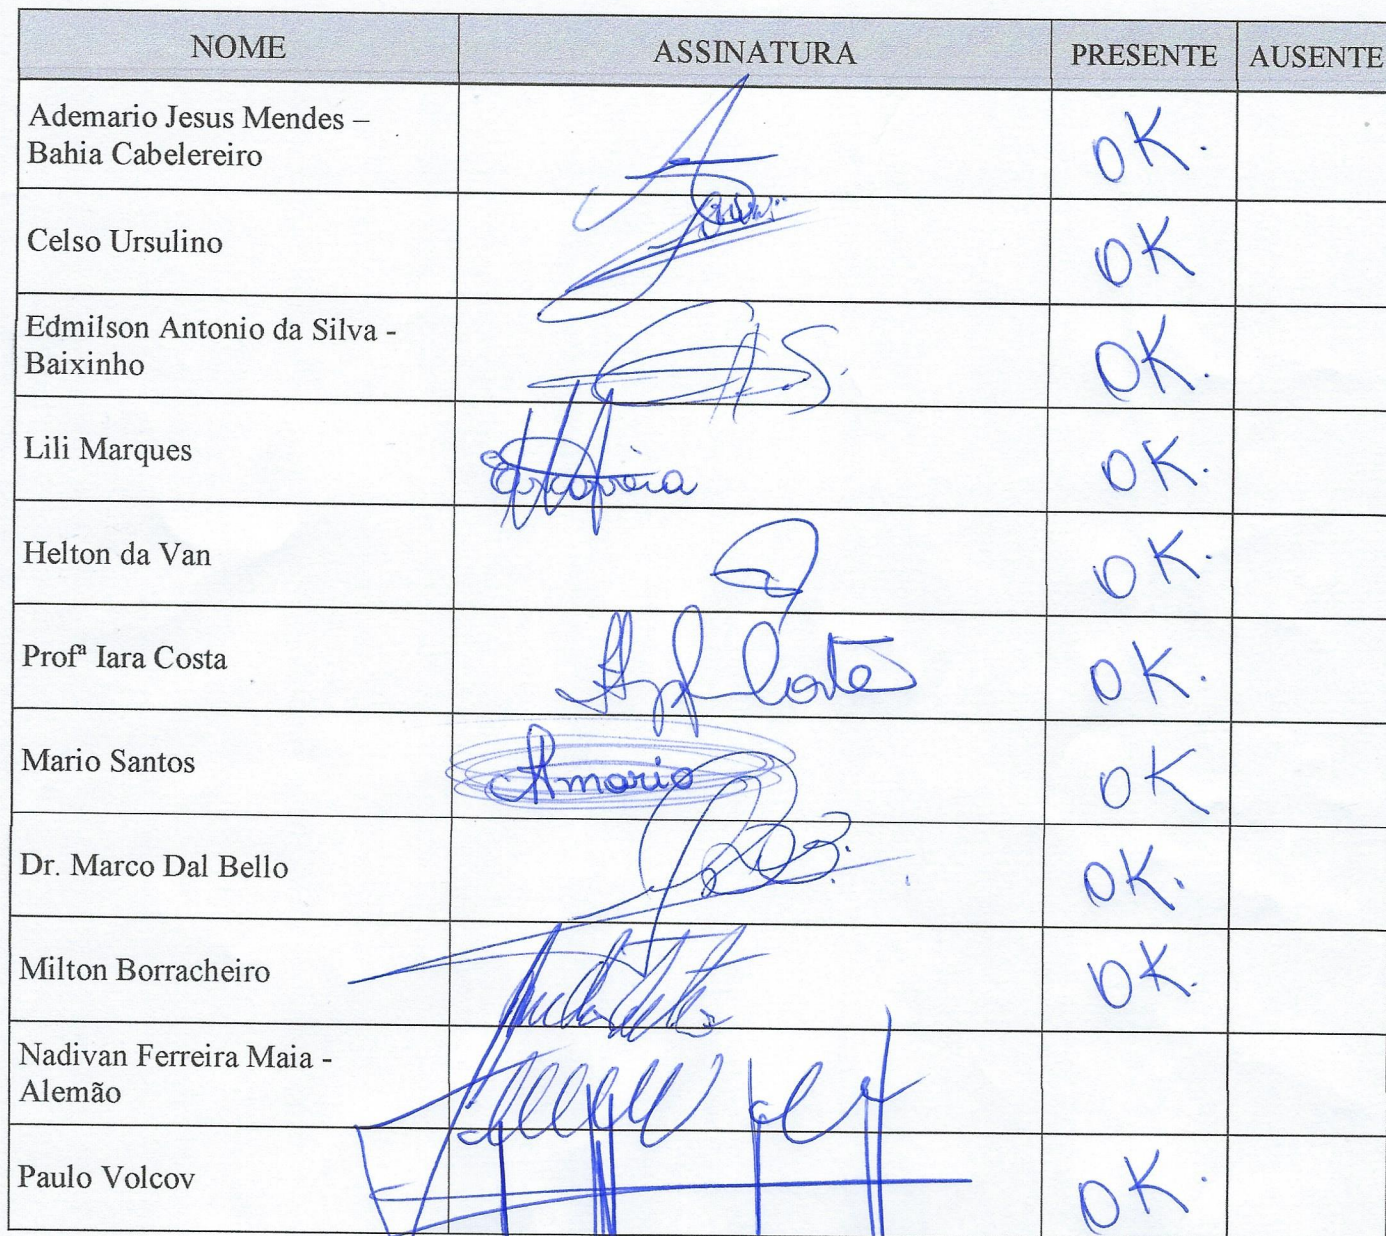 NOME ASSINATURA PRESENTE AUSENTE
Ademario Jesus Mendes –
Bahia Cabelereiro OK.
Celso Ursulino OK
Edmilson Antonio da Silva -
Baixinho OK.
Lili Marques OK.
Helton da Van OK.
Profª Iara Costa Costa OK.
Mario Santos Amario OK
Dr. Marco Dal Bello OK.
Milton Borracheiro OK.
Nadivan Ferreira Maia -
Alemão
Paulo Volcov OK.